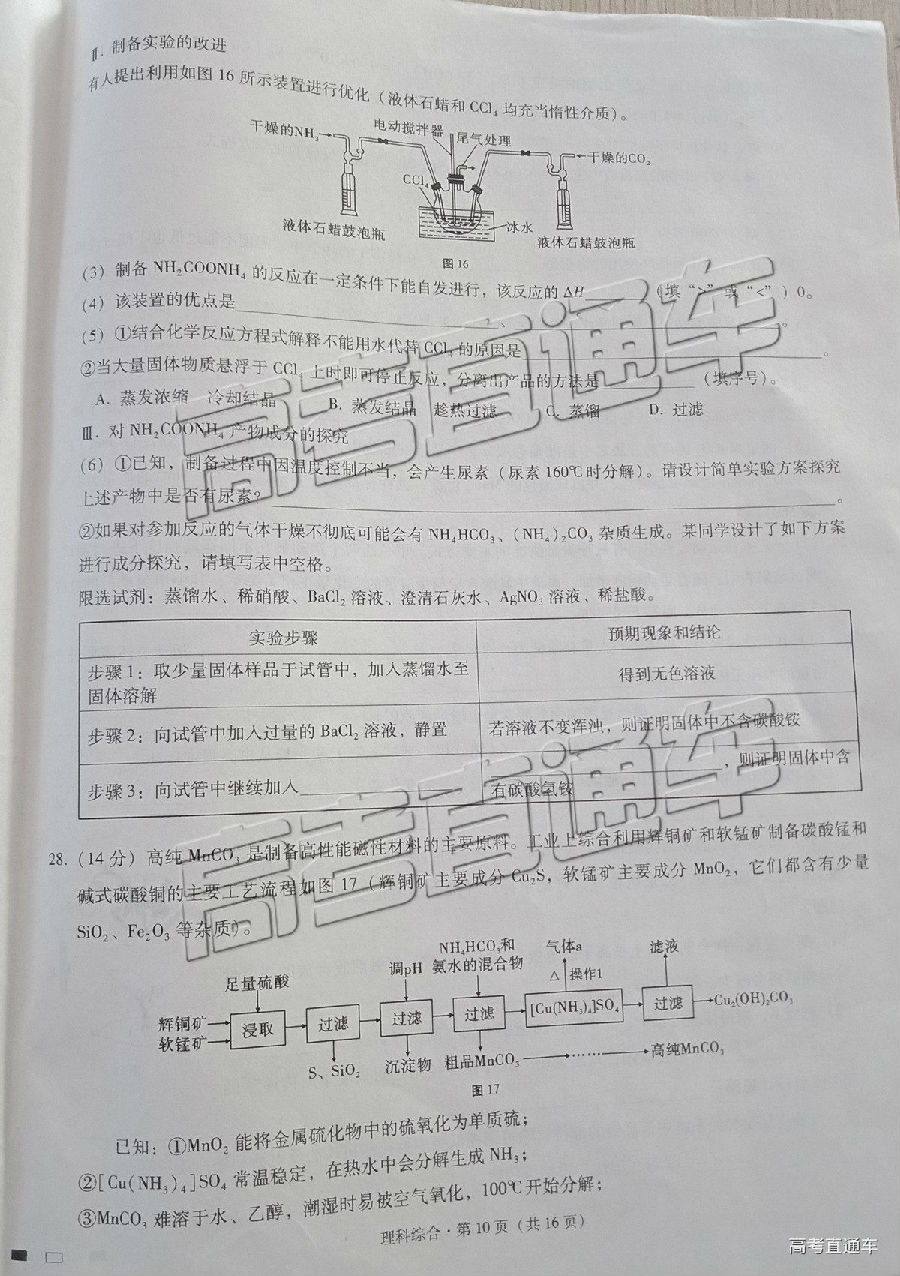 Ⅱ. 制备实验的改进
有人提出利用如图16所示装置进行优化（液体石蜡和CCl₄均充当惰性介质）。
干燥的NH₃
电动搅拌器
尾气处理
干燥的CO₂
CCl₄
液体石蜡鼓泡瓶
冰水
液体石蜡鼓泡瓶
图16
(3) 制备NH₂COONH₄的反应在一定条件下能自发进行，该反应的ΔH（填“>”或“<”）0。
(4) 该装置的优点是、。
(5) ①结合化学反应方程式解释不能用水代替CCl₄的原因是。
②当大量固体物质悬浮于CCl₄上时即可停止反应，分离出产品的方法是（填序号）。
A. 蒸发浓缩 冷却结晶 B. 蒸发结晶 趁热过滤 C. 蒸馏 D. 过滤
Ⅲ. 对NH₂COONH₄产物成分的探究
(6) ①已知，制备过程中因温度控制不当，会产生尿素（尿素160℃时分解）。请设计简单实验方案探究
上述产物中是否有尿素？。
②如果对参加反应的气体干燥不彻底可能会有NH₄HCO₃、(NH₄)₂CO₃杂质生成。某同学设计了如下方案
进行成分探究，请填写表中空格。
限选试剂：蒸馏水、稀硝酸、BaCl₂溶液、澄清石灰水、AgNO₃溶液、稀盐酸。
实验步骤 预期现象和结论
步骤1：取少量固体样品于试管中，加入蒸馏水至
固体溶解
得到无色溶液
步骤2：向试管中加入过量的BaCl₂溶液，静置 若溶液不变浑浊，则证明固体中不含碳酸铵
步骤3：向试管中继续加入
，则证明固体中含
有碳酸氢铵
28. (14分) 高纯MnCO₃是制备高性能磁性材料的主要原料。工业上综合利用辉铜矿和软锰矿制备碳酸锰和
碱式碳酸铜的主要工艺流程如图17（辉铜矿主要成分Cu₂S，软锰矿主要成分MnO₂，它们都含有少量
SiO₂、Fe₂O₃等杂质）。
足量硫酸
调pH
NH₄HCO₃和
氨水的混合物
气体a
△ 操作1
滤液
辉铜矿
软锰矿
浸取
过滤
过滤
过滤
[Cu(NH₃)₄]SO₄
过滤
Cu₂(OH)₂CO₃
S、SiO₂
沉淀物
粗品MnCO₃
……
高纯MnCO₃
图17
已知：①MnO₂能将金属硫化物中的硫氧化为单质硫；
②[Cu(NH₃)₄]SO₄常温稳定，在热水中会分解生成NH₃；
③MnCO₃难溶于水、乙醇，潮湿时易被空气氧化，100℃开始分解；
理科综合·第10页（共16页）
高考直通车
高考直通车
高考直通车